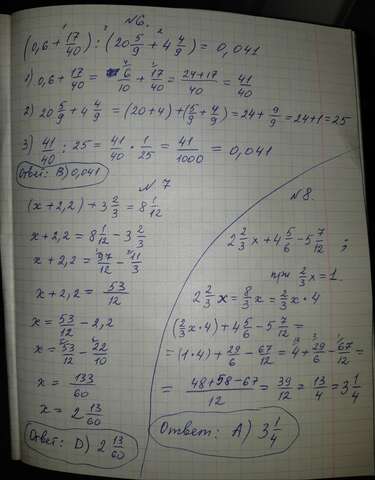 №6.
(0,6 + 17/40) : (20 5/9 + 4 4/9) = 0,041
1) 0,6 + 17/40 = 6/10 + 17/40 = 24+17/40 = 41/40
2) 20 5/9 + 4 4/9 = (20+4) + (5/9 + 4/9) = 24 + 9/9 = 24+1 = 25
3) 41/40 : 25 = 41/40 · 1/25 = 41/1000 = 0,041
Ответ: В) 0,041
№7
(x + 2,2) + 3 2/3 = 8 1/12
x + 2,2 = 8 1/12 - 3 2/3
x + 2,2 = 97/12 - 11/3
x + 2,2 = 53/12
x = 53/12 - 2,2
x = 53/12 - 22/10
x = 133/60
x = 2 13/60
Ответ: D) 2 13/60
№8.
2 2/3 x + 4 5/6 - 5 7/12 ;
при 2/3 x = 1.
2 2/3 x = 8/3 x = 2/3 x · 4
(2/3 x · 4) + 4 5/6 - 5 7/12 =
= (1·4) + 29/6 - 67/12 = 4 + 29/6 - 67/12 =
= 48+58-67/12 = 39/12 = 13/4 = 3 1/4
Ответ: А) 3 1/4